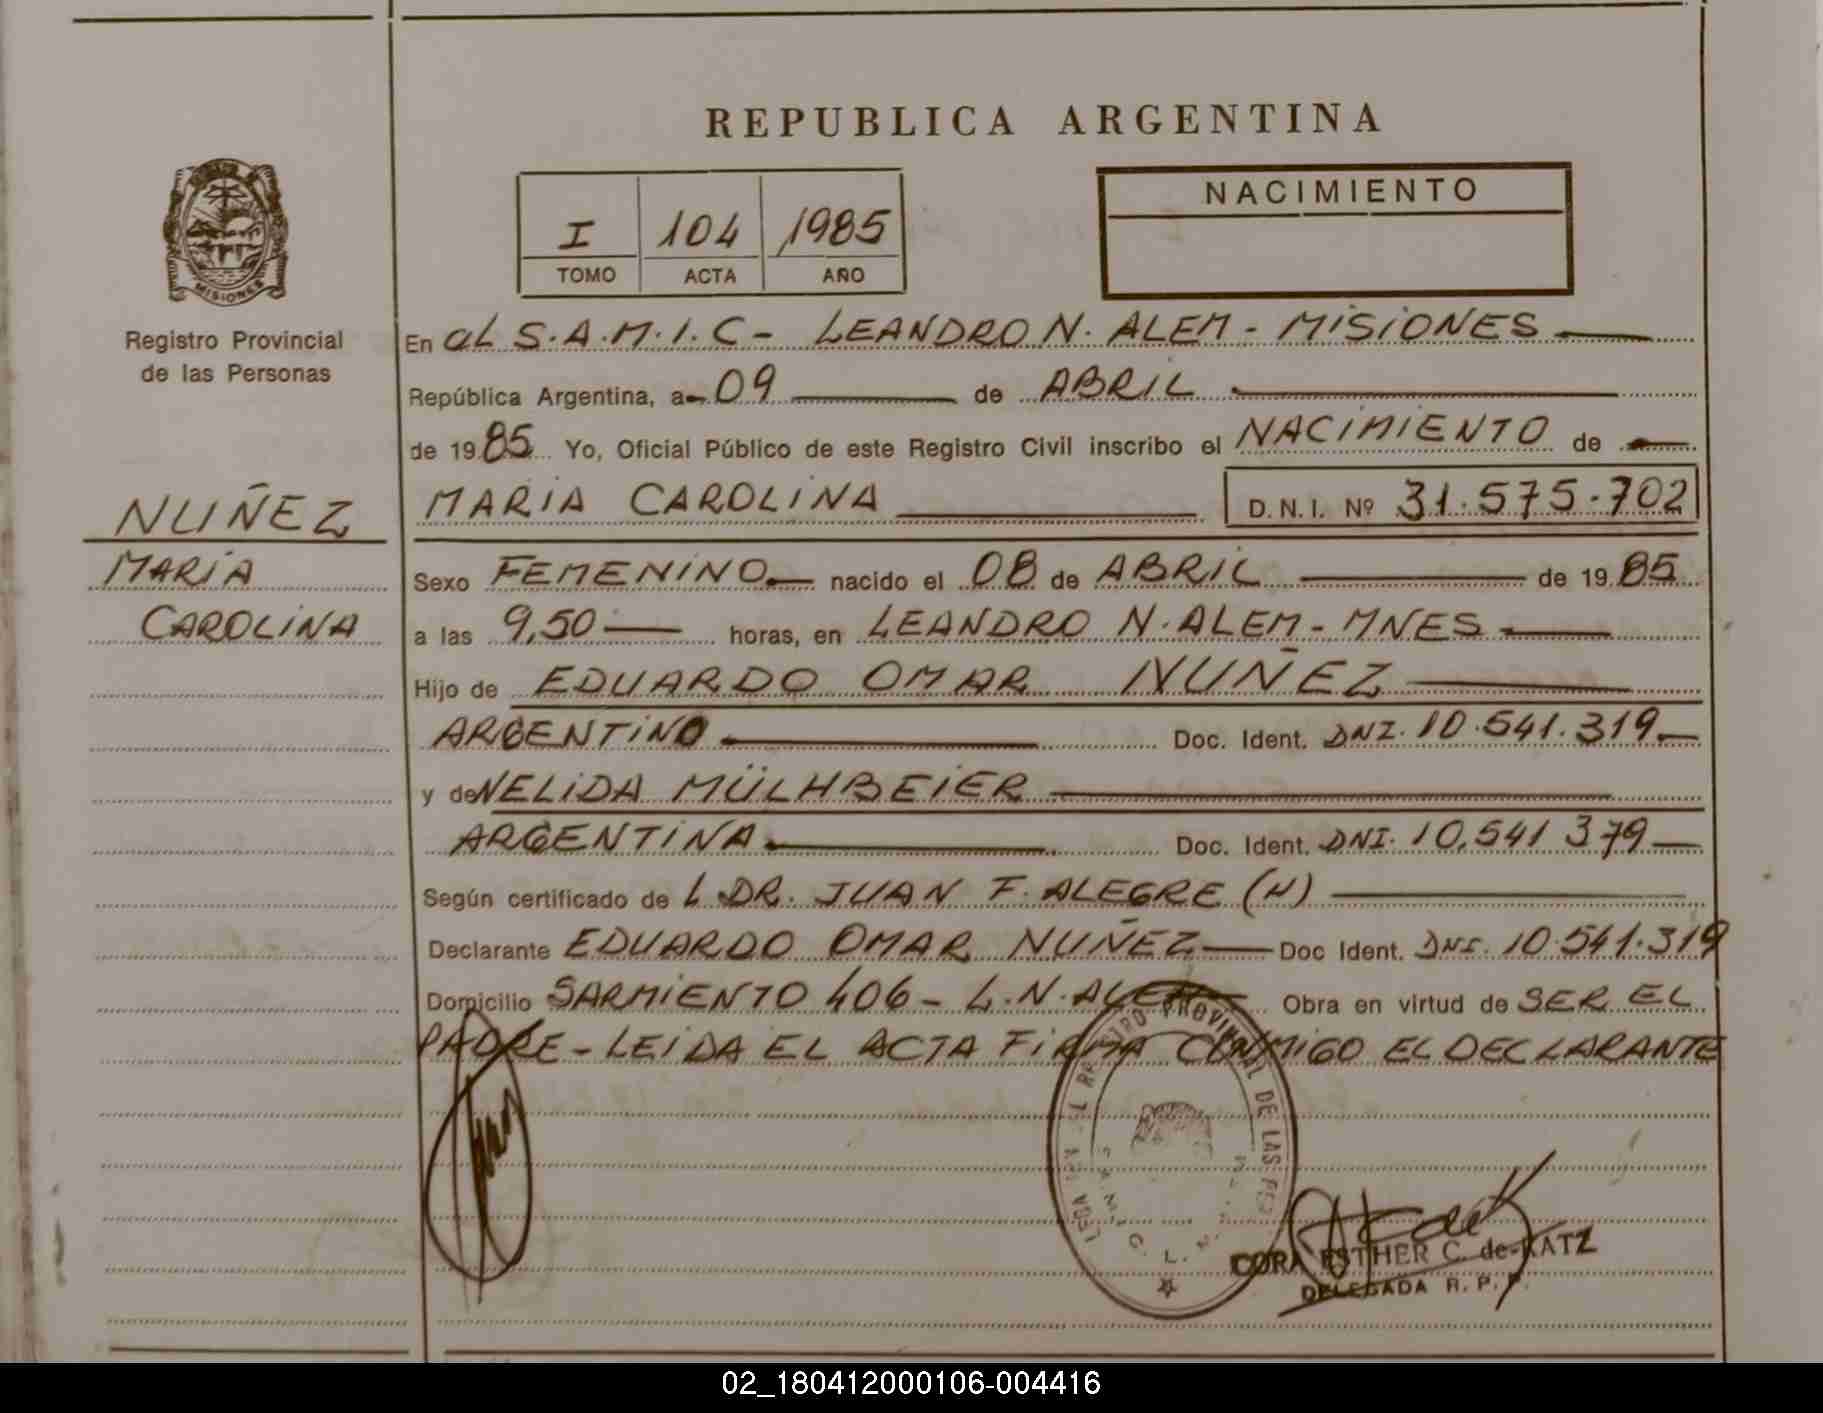 REPUBLICA ARGENTINA
I 104 1985
TOMO ACTA AÑO
NACIMIENTO
MISIONES
Registro Provincial
de las Personas
NUÑEZ
MARIA
CAROLINA
En el S.A.M.I.C - LEANDRO N. ALEM - MISIONES
República Argentina, a 09 de ABRIL
de 1985 Yo, Oficial Público de este Registro Civil inscribo el NACIMIENTO de
MARIA CAROLINA D.N.I. Nº 31.575.702
Sexo FEMENINO nacido el 08 de ABRIL de 1985
a las 9,50 horas, en LEANDRO N. ALEM - MNES
Hijo de EDUARDO OMAR NUÑEZ
ARGENTINO Doc. Ident. DNI. 10.541.319
y de NELIDA MÜLHBEIER
ARGENTINA Doc. Ident. DNI. 10.541 379
Según certificado de L DR. JUAN F. ALEGRE (H)
Declarante EDUARDO OMAR NUÑEZ Doc Ident. DNI. 10.541.319
Domicilio SARMIENTO 406 - L.N.ALEM Obra en virtud de SER EL
PADRE - LEIDA EL ACTA FIRMA CONMIGO EL DECLARANTE
PROVINCIAL DE LAS
S.A.M.I.C. L.N.
CORA ESTHER C. de KATZ
DELEGADA R. P. P.
02_180412000106-004416